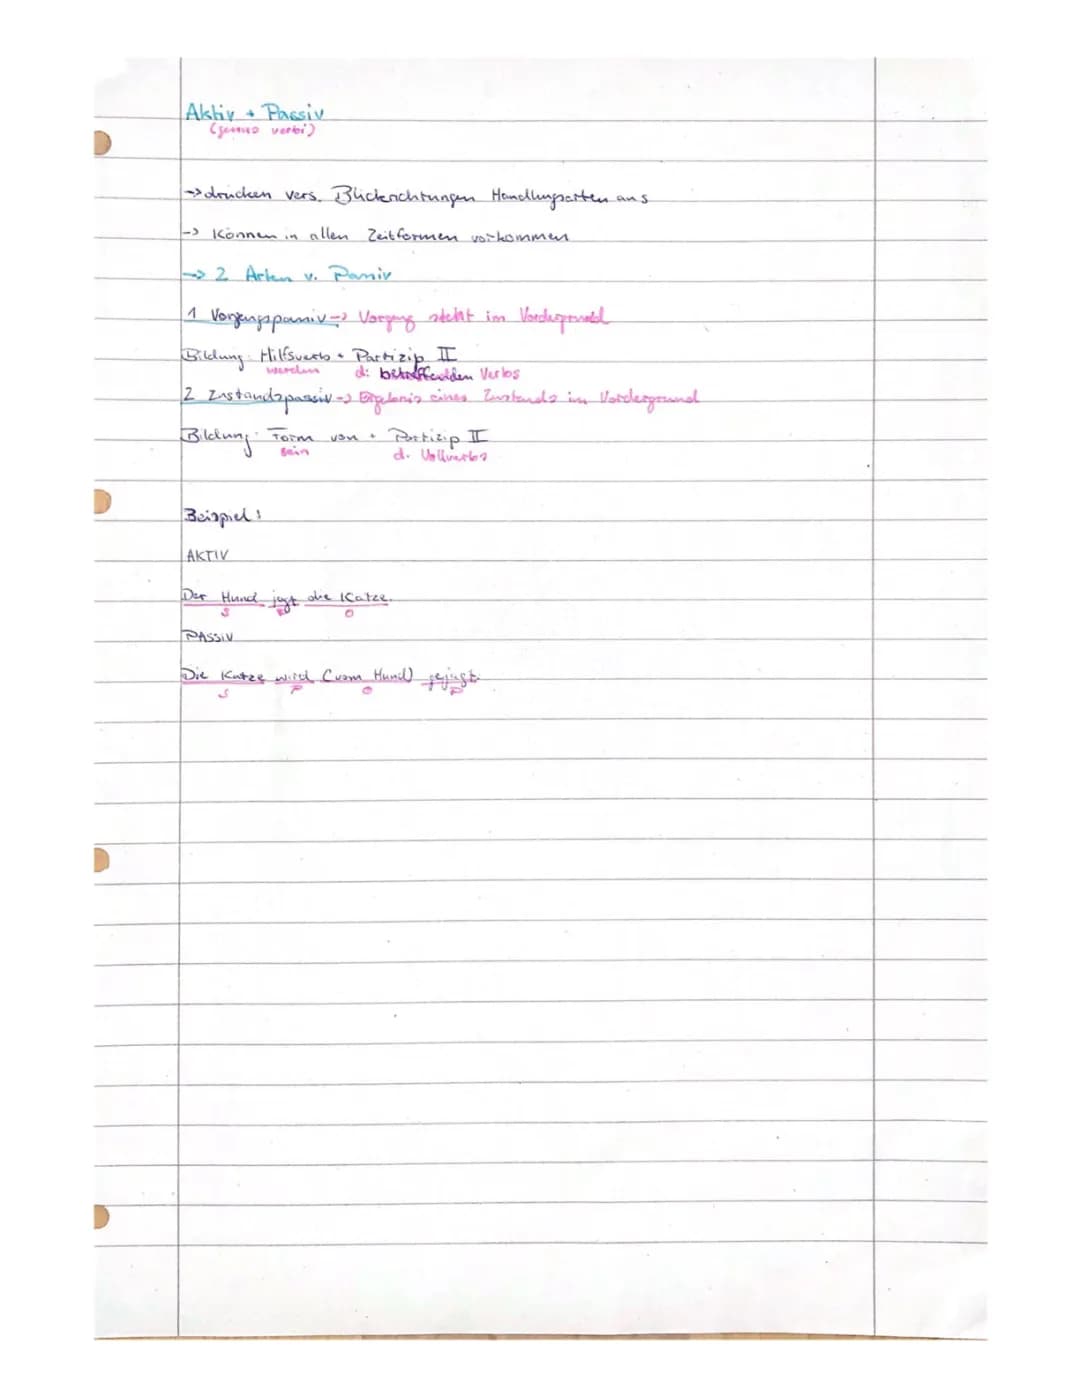 Aktiv + Passiv
(genus verbi)
-> drücken vers. Blickrichtungen Handlungsarten aus
-> Können in allen Zeitformen vorkommen
-> 2 Arten v. Passiv
1 Vorgangspassiv -> Vorgang steht im Vordergrund
Bildung: Hilfsverb + Partizip II
werden d. betreffenden Verbs
2 Zustandspassiv -> Ergebnis eines Zustands im Vordergrund
Bildung: Form von + Partizip II
sein d. Vollverbs
Beispiel:
AKTIV
Der Hund jagt die Katze.
S P O
PASSIV
Die Katze wird (vom Hund) gejagt.
S P O P